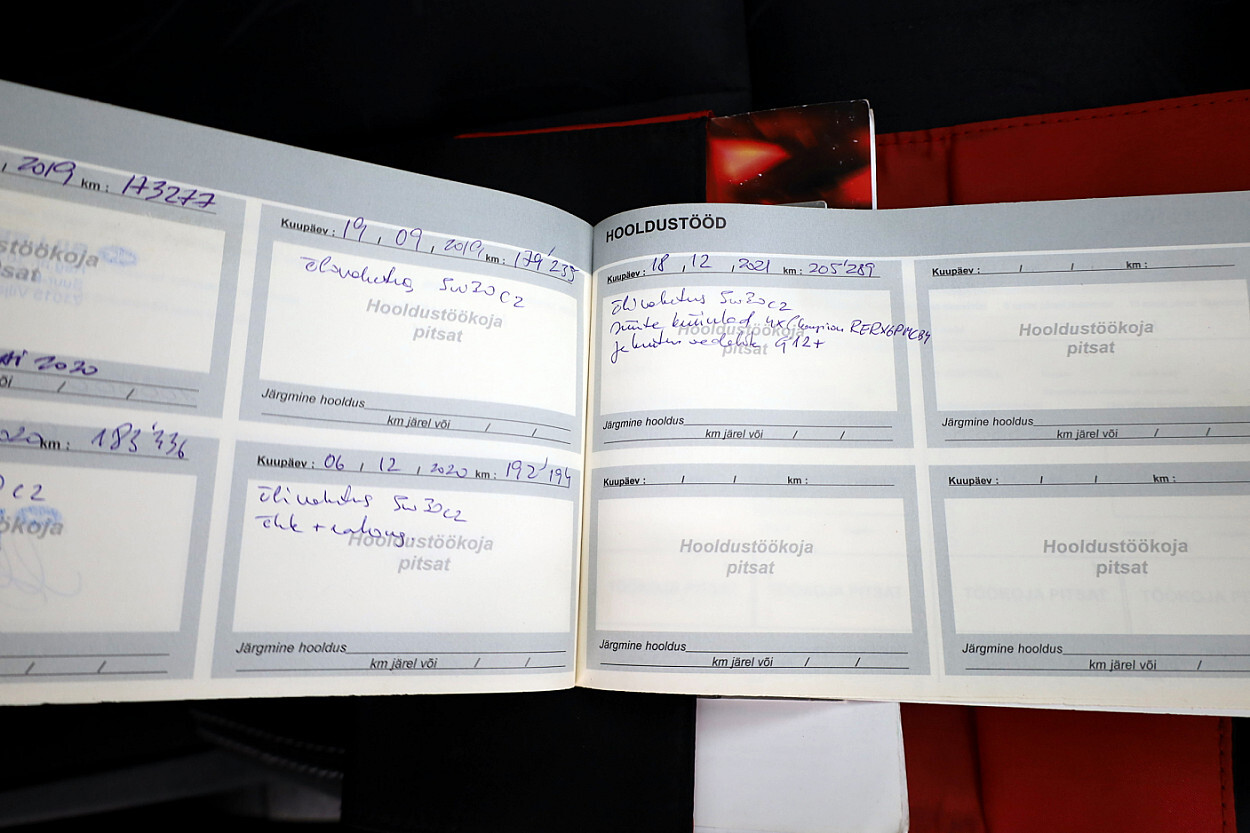 , 2019 km : 173277
Hooldustöökoja
pitsat
2020
või / /
km : 183'436
C2
/ /
Kuupäev : 19 , 09 , 2019 km : 179'235
Õlivahetus 5w30 C2
Hooldustöökoja
pitsat
Järgmine hooldus
km järel või / /
Kuupäev : 06 , 12 , 2020 km : 192'194
Õlivahetus 5w30 C2
Hooldustöökoja
pitsat
Järgmine hooldus
km järel või / /
HOOLDUSTÖÖD
Kuupäev : 18 , 12 , 2021 km : 205'289
Õlivahetus 5w30 C2
süüte küünlad 4x Champion
jahutusvedelik G12+
Hooldustöökoja
pitsat
Järgmine hooldus
km järel või / /
Kuupäev : / / km :
Hooldustöökoja
pitsat
Järgmine hooldus
km järel või / /
Kuupäev : / / km :
Hooldustöökoja
pitsat
Järgmine hooldus
km järel või / /
Kuupäev : / / km :
Hooldustöökoja
pitsat
Järgmine hooldus
km järel või / /